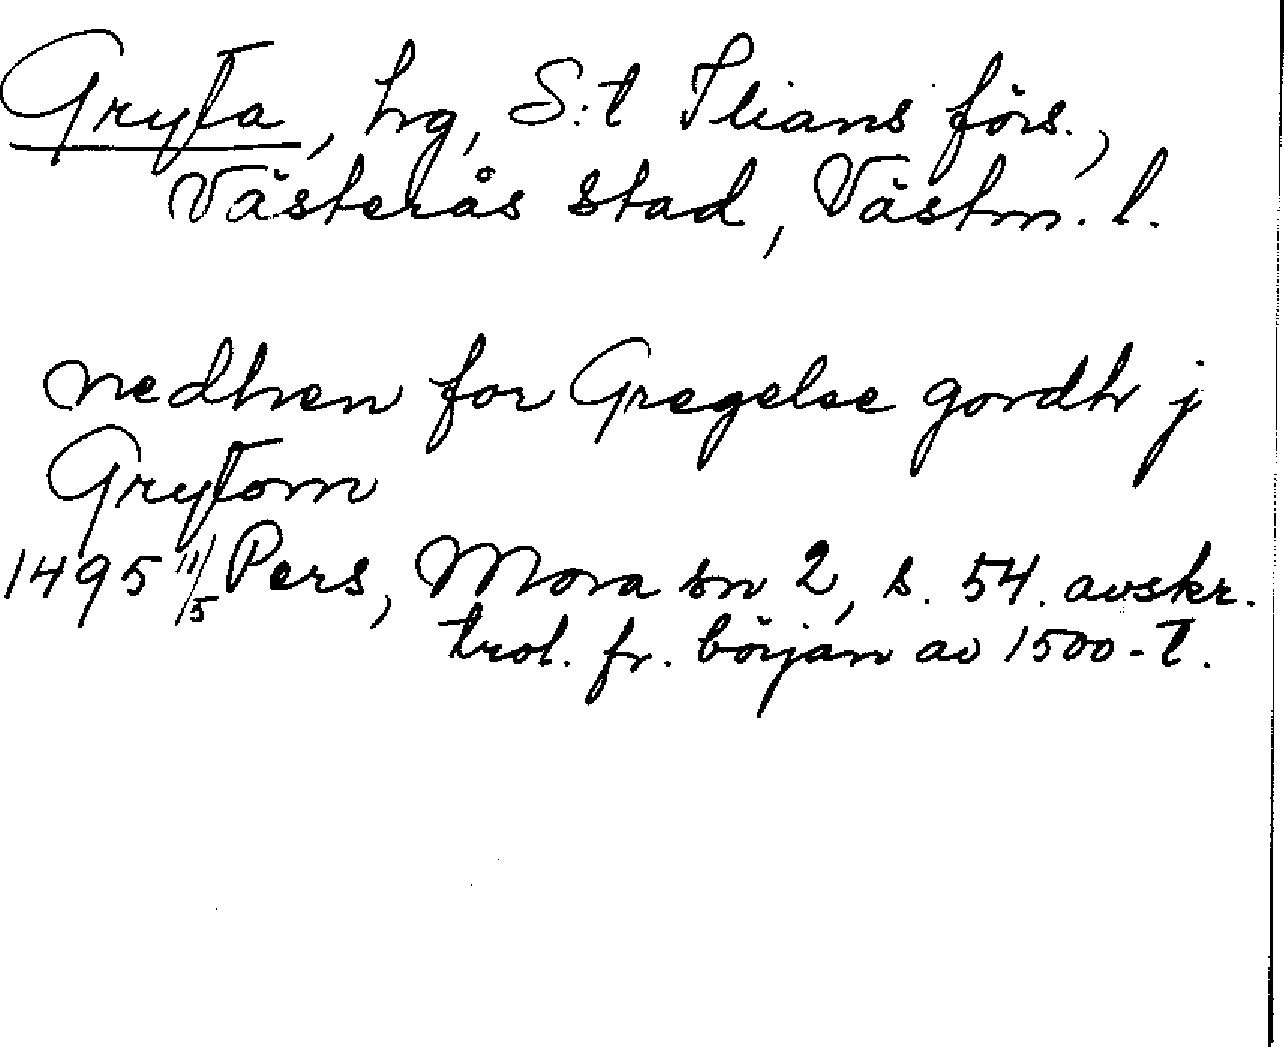 Gryta, hg, S:t Ilians förs.,
Västerås stad, Västm. l.
nedhen for Gregelse gordh j
Grytom
1495 11/5 Pers, Mora sn 2, s. 54. avskr.
trol. fr. början av 1500-t.